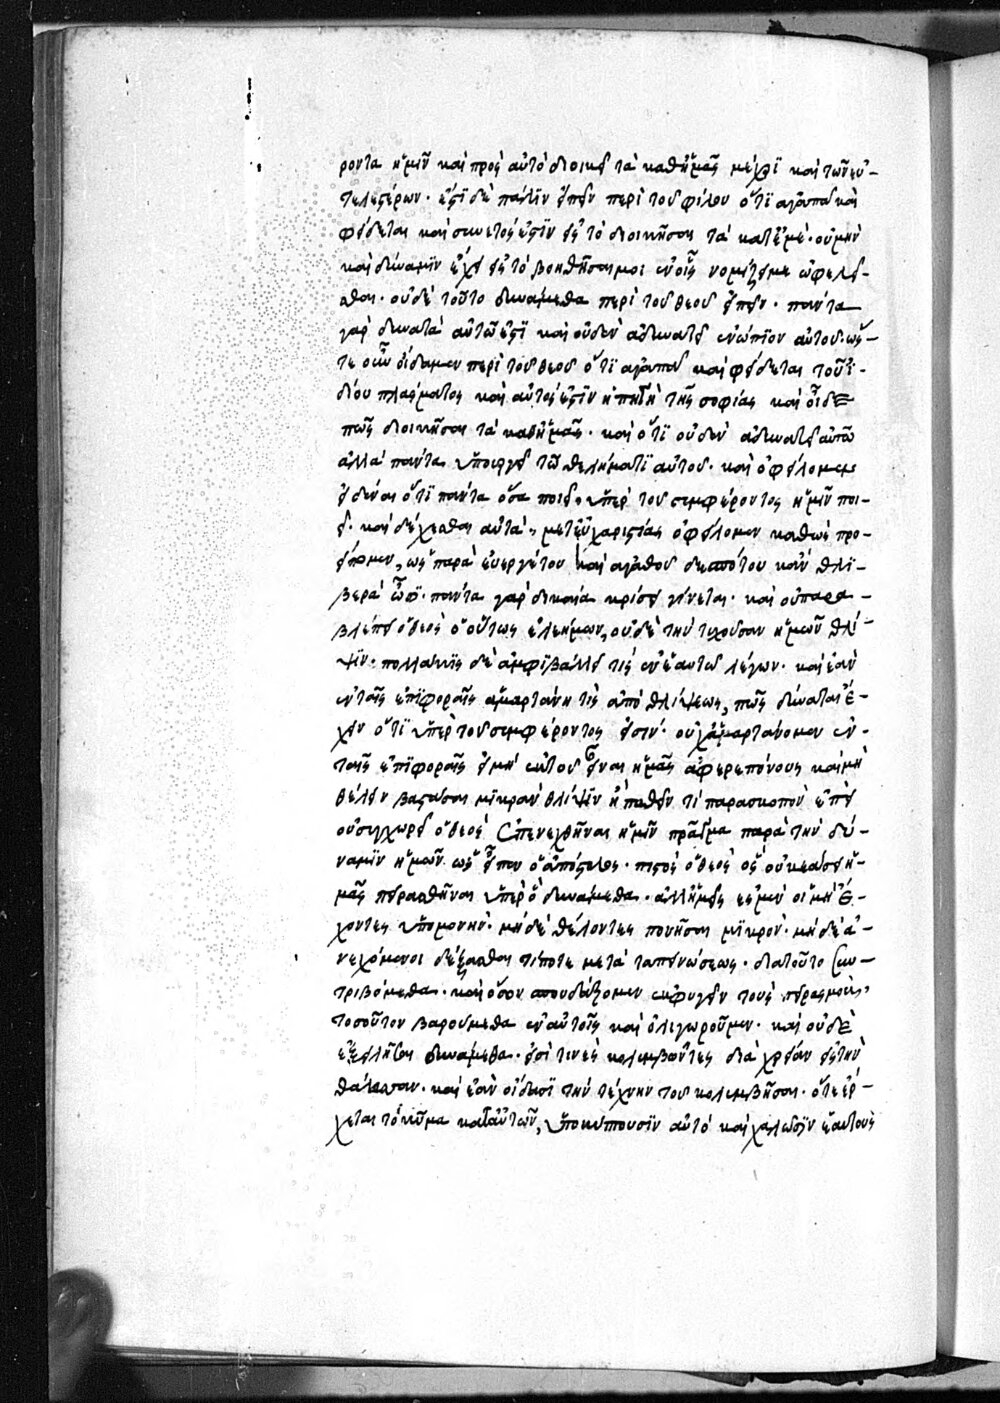 ροντα ἡμῖν καὶ πρὸς αὐτὸ διοικεῖ τὰ καθ' ἡμᾶς μέχρι καὶ τῶν εὐ-
τελεστέρων· ἔστι δὲ πάλιν εἰπεῖν περὶ τοῦ φίλου ὅτι ἀγαπᾷ καὶ
φείδεται καὶ συνετός ἐστιν εἰς τὸ διοικῆσαι τὰ κατ' ἐμέ· οὐ μὴν
καὶ δύναμιν ἔχει εἰς τὸ βοηθῆσαί μοι ἐν οἷς νομίζει με ὠφελεῖ-
σθαι· οὐδὲ τοῦτο δυνάμεθα περὶ τοῦ θεοῦ εἰπεῖν· πάντα
γὰρ δυνατὰ αὐτῷ ἐστὶ καὶ οὐδὲν ἀδυνατεῖ ἐνώπιον αὐτοῦ· ὥσ-
τε οὖν οἴδαμεν περὶ τοῦ θεοῦ ὅτι ἀγαπᾷ καὶ φείδεται τοῦ ἰ-
δίου πλάσματος καὶ αὐτός ἐστιν ἡ πηγὴ τῆς σοφίας καὶ οἶδε
πῶς διοικῆσαι τὰ καθ' ἡμᾶς· καὶ ὅτι οὐδὲν ἀδυνατεῖ αὐτῷ
ἀλλὰ πάντα ὑπουργεῖ τῷ θελήματι αὐτοῦ· καὶ ὀφείλομεν
εἰδέναι ὅτι πάντα ὅσα ποιεῖ, ὑπὲρ τοῦ συμφέροντος ἡμῖν ποι-
εῖ· καὶ δέχεσθαι αὐτὰ, μετ' εὐχαριστίας ὀφείλομεν καθὼς προ-
είπομεν, ὡς παρὰ εὐεργέτου καὶ ἀγαθοῦ δεσπότου κἂν θλι-
βερὰ ὦσι· πάντα γὰρ δικαίᾳ κρίσει γίνεται· καὶ οὐ παρα-
βλέπει ὁ θεὸς ὁ οὕτως ἐλεήμων, οὐδὲ τὴν τυχοῦσαν ἡμῶν θλί-
ψιν· πολλάκις δὲ ἀμφιβάλλει τὶς ἐν ἑαυτῷ λέγων· καὶ ἐὰν
ἐν ταῖς ἐπιφοραῖς ἁμαρτάνῃ τὶς ἀπὸ θλίψεως, πῶς δύναται ἔ-
χειν ὅτι ὑπὲρ τοῦ συμφέροντος εἰσίν· οὐχ ἁμαρτάνομεν ἐν
ταῖς ἐπιφοραῖς εἰ μὴ ἐκ τοῦ εἶναι ἡμᾶς ἀφερεπόνους καὶ μὴ
θέλειν βαστάσαι μικρὰν θλίψιν ἢ παθεῖν τι παρὰ σκοπὸν ἐπεὶ
οὐ συγχωρεῖ ὁ θεὸς ἐπενεχθῆναι ἡμῖν πρᾶγμα παρὰ τὴν δύ-
ναμιν ἡμῶν ὡς εἶπεν ὁ ἀπόστολος· πιστὸς ὁ θεὸς ὃς οὐκ ἐάσει ἡ-
μᾶς πειρασθῆναι ὑπὲρ ὃ δυνάμεθα· ἀλλ' ἡμεῖς ἐσμὲν οἱ μὴ ἔ-
χοντες ὑπομονήν· μηδὲ θέλοντες πονῆσαι μικρόν· μηδὲ ἀ-
νεχόμενοι δέξασθαι τίποτε μετὰ ταπεινώσεως· διὰ τοῦτο συν-
τριβόμεθα· καὶ ὅσον σπουδάζομεν ἐκφυγεῖν τοὺς πειρασμοὺς,
τοσοῦτον βαρούμεθα ἐν αὐτοῖς καὶ ὀλιγωροῦμεν· καὶ οὐδὲ
ἐξειλῆσαι δυνάμεθα· εἰσί τινες κολυμβῶντες διὰ χρείαν εἰς τὴν
θάλασσαν· καὶ ἐὰν οἴδασι τὴν τέχνην τοῦ κολυμβῆσαι· ὅτε ἔρ-
χεται τὸ κῦμα κατ' αὐτῶν, ὑποκύπτουσιν αὐτὸ καὶ χαλῶσιν ἑαυτοὺς